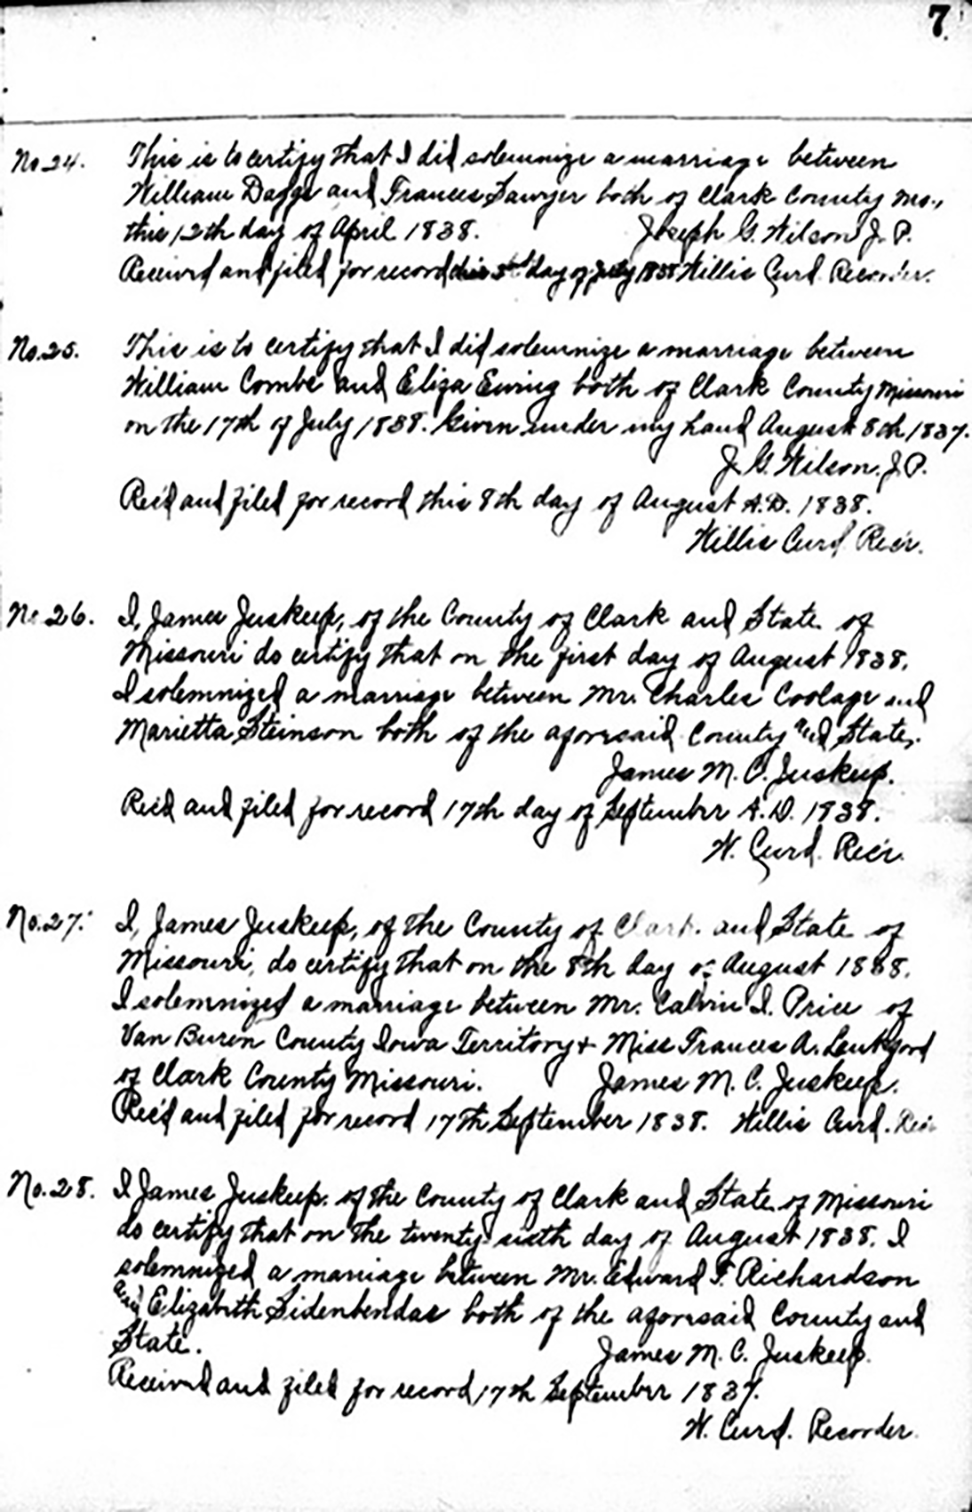 7
No. 24. This is to certify that I did solemnize a marriage between
William Daggs and Frances Sawyer both of Clark County Mo.,
this 12th day of April 1838. Joseph G. Wilson J. P.
Received and filed for record this 3rd day of July 1838 Willis Curd Recorder.
No. 25. This is to certify that I did solemnize a marriage between
William Combe and Eliza Ewing both of Clark County Missouri
on the 17th of July 1838. Given under my hand August 8th 1837.
J. G. Wilson, J. P.
Rec'd and filed for record this 8th day of August A.D. 1838.
Willis Curd Rec'r.
No. 26. I, James Juskeep, of the County of Clark and State of
Missouri do certify that on the first day of August 1838,
I solemnized a marriage between Mr. Charles Coolage and
Marietta Steinson both of the aforesaid County and State.
James M. C. Juskeep.
Rec'd and filed for record 17th day of September A.D. 1838.
W. Curd Rec'r.
No. 27. I, James Juskeep, of the County of Clark and State of
Missouri, do certify that on the 8th day of August 1838.
I solemnized a marriage between Mr. Calvin I. Price of
Van Buren County Iowa Territory & Miss Frances A. Lankford
of Clark County Missouri. James M. C. Juskeep.
Rec'd and filed for record 17th September 1838. Willis Curd. Rec'r
No. 28. I James Juskeep. of the County of Clark and State of Missouri
do certify that on the twenty sixth day of August 1838. I
solemnized a marriage between Mr. Edward F. Richardson
and Elizabeth Sidenbendas both of the aforesaid County and
State. James M. C. Juskeep.
Received and filed for record, 17th September 1837.
W. Curd. Recorder.